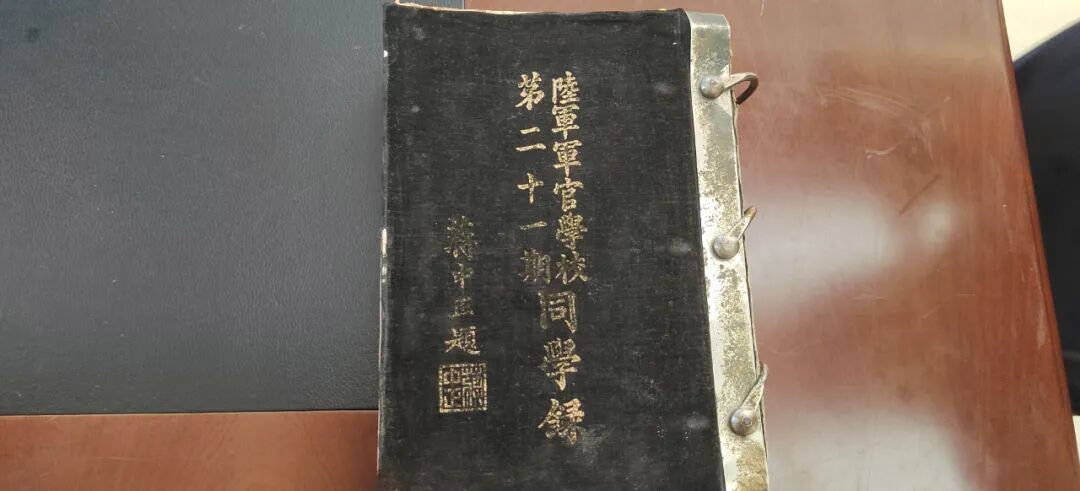 陸軍軍官學校
第二十一期
同學錄
蔣中正題
蔣中正